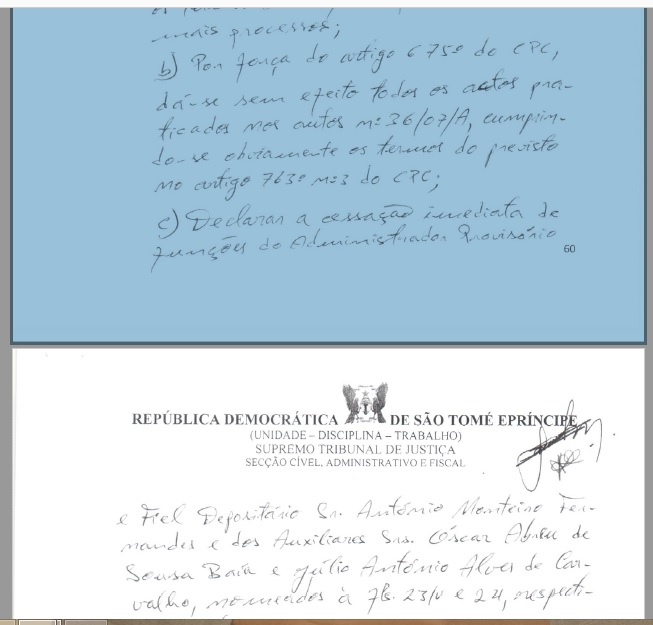 mais processos;
b) Por força do artigo 675º do CPC,
dá-se sem efeito todos os actos pra-
ticados nos autos nº 36/07/A, cumprin-
do-se obviamente os termos do previsto
no artigo 763º nº3 do CPC;
c) Declarar a cessação imediata de
funções do Administrador Provisório
60
REPÚBLICA DEMOCRÁTICA DE SÃO TOMÉ EPRÍNCIPE
(UNIDADE – DISCIPLINA – TRABALHO)
SUPREMO TRIBUNAL DE JUSTIÇA
SECÇÃO CÍVEL, ADMINISTRATIVO E FISCAL
e Fiel Depositário Sr. António Monteiro Fer-
nandes e dos Auxiliares Srs. Óscar Abreu de
Sousa Baía e Júlio António Alves de Car-
valho, nomeados à fls. 23/v e 24, respecti-